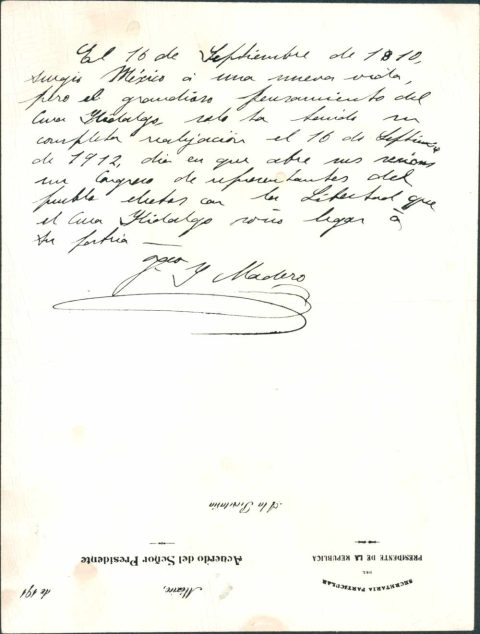 El 16 de Septiembre de 1810,
surgio México á una nueva vida,
pero el grandioso pensamiento del
Cura Hidalgo, solo ha tenido su
completa realización el 16 de Septiembre
de 1912, dia en que abre sus sesiones
un Congreso de representantes del
pueblo electos con la Libertad que
el Cura Hidalgo soño legar á
su patria —
Fco I Madero
A la Secretaria
Acuerdo del Señor Presidente
México,
de 191
SECRETARIA PARTICULAR
DEL
PRESIDENTE DE LA REPUBLICA